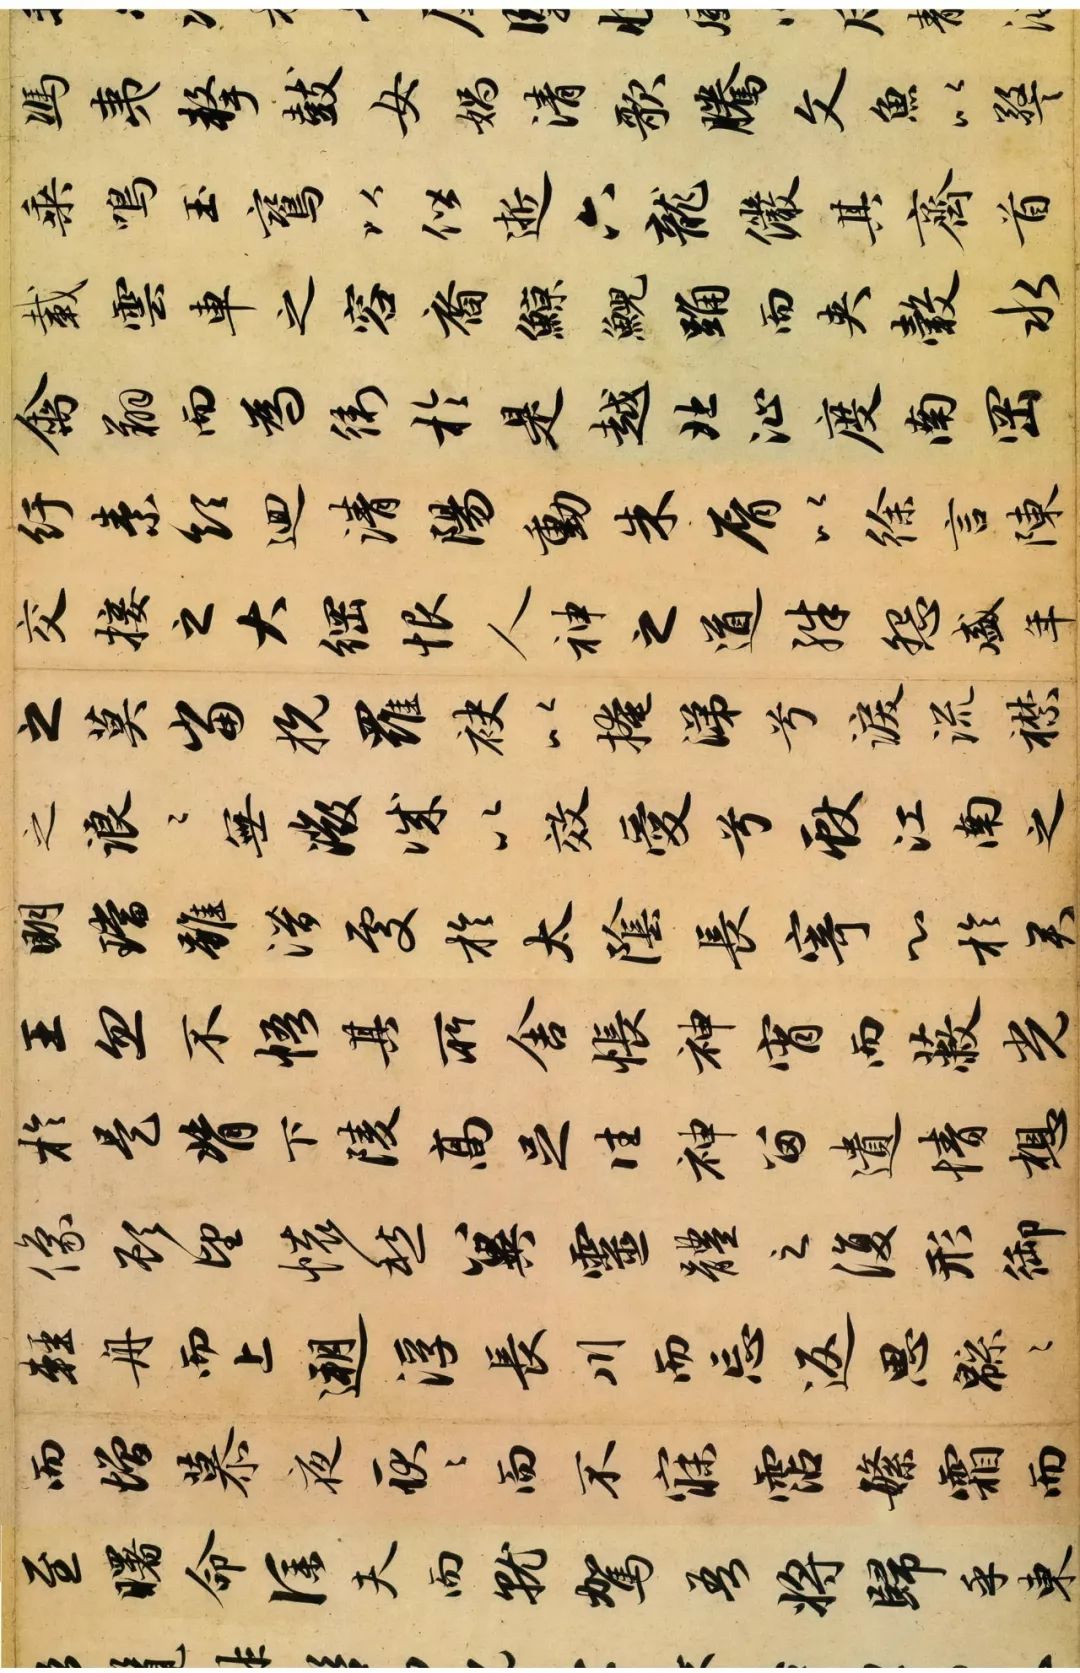 馮夷擊鼓女媧清歌騰文魚以警
乘鳴玉鸞以偕逝六龍儼其齊首
載雲車之容裔鯨鯢踴而夾轂水
禽翔而為衛於是越北沚度南岡
紆素領迴清陽動朱脣以徐言陳
交接之大綱恨人神之道殊怨盛年
之莫當抗羅袂以掩涕兮淚流襟
之浪〻無微誠以效愛兮獻江南之
明璫雖潛處於太陰長寄心於君
王忽不悟其所舍悵神宵而蔽光
於是背下陵高足往神留遺情想
像顧望懷愁冀靈體之復形御
輕舟而上遡浮長川而忘返思緜〻
而增慕夜耿〻而不寐霑繁霜而
至曙命僕夫而就駕吾將歸乎東